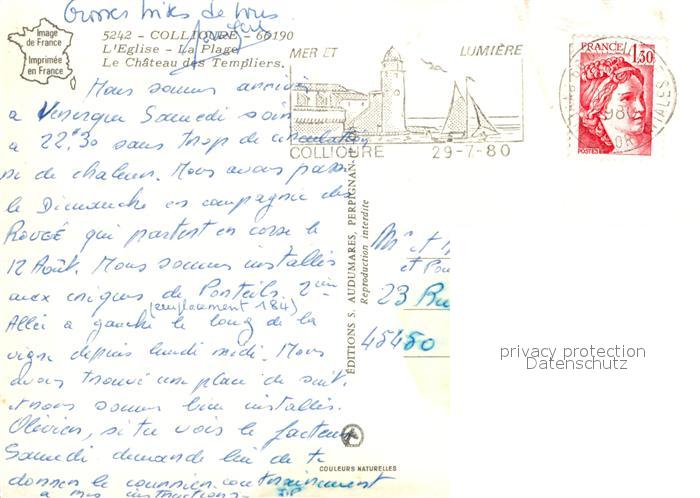 Grosses bises de tous
Image
de France
Imprimée
en France
5242 - COLLIOURE - 66190
L'Eglise - La Plage
Le Château des Templiers.
MER ET LUMIÈRE
COLLIOURE 29-7-80
FRANCE
1,30
POSTES
Nous sommes arrivés
a Samedi soir
a 22H30 sans trop de circulation
ni de chaleur. Nous avons passé
le Dimanche en compagnie des
ROUGÉ qui partent en corse le
12 Août. Nous sommes installés
aux criques de Porteils. 2ième
(emplacement 184)
Allée a gauche le long de la
vigne depuis lundi midi. Nous
avons trouvé une place de suite
et nous sommes bien installés.
Olivier, si tu vois le facteur
Samedi demande lui de te
donner le courrier contrairement
a mes instructions-
ÉDITIONS S. AUDUMARES, PERPIGNAN
Reproduction interdite
COULEURS NATURELLES
et
et
23
45450
privacy protection
Bildpostkarten